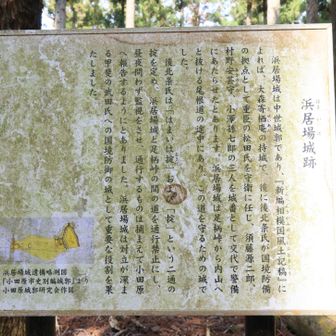 浜居場城跡
浜居場城は中世城郭であり、『新編相模国風土記稿』に
よれば、大森寄栖庵の持城で、後に後北条氏が国境防備
の拠点として重臣の松田氏を守衛に任じ、須藤源二郎、
村野安芸守、小沢孫七郎の三人を城番として交代で警備
にあたらせたとあります。浜居場城は足柄峠から内山へ
と抜ける尾根道の途中にあり、この道を守るための城で
した。
後北条氏は「はまいは掟」および「掟」という二通の
掟を定め、浜居場城と足柄峠の間の道を通行禁止にし、
昼夜問わず監視をさせ、通行するものは捕まえて小田原
へ報告するようにとありました。浜居場城は対立が深ま
る甲斐の武田氏への国境防御の城として重要な役割を果
たしました。
浜居場城遺構略測図
『小田原市史別編城郭』より
小田原城郭研究会作図